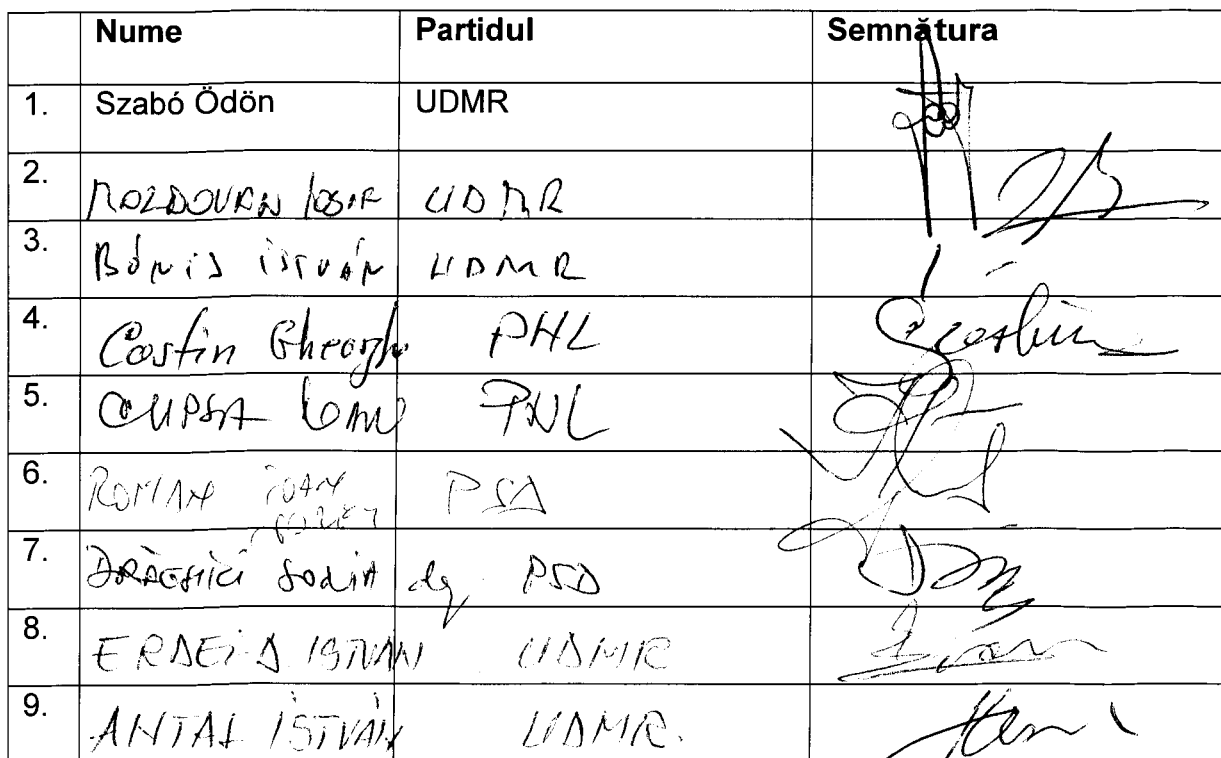 Nume Partidul Semnătura
1. Szabó Ödön UDMR
2. MOLDOVAN IOSIF UDMR
3. Bónis István UDMR
4. Costin Gheorghe PNL
5. CUPȘA IOAN PNL
6. ROMAN IOAN PSD
SORIN
7. DRĂGHICI SONIA dep PSD
8. ERDEI D ISTVÁN UDMR
9. ANTAL ISTVÁN UDMR.